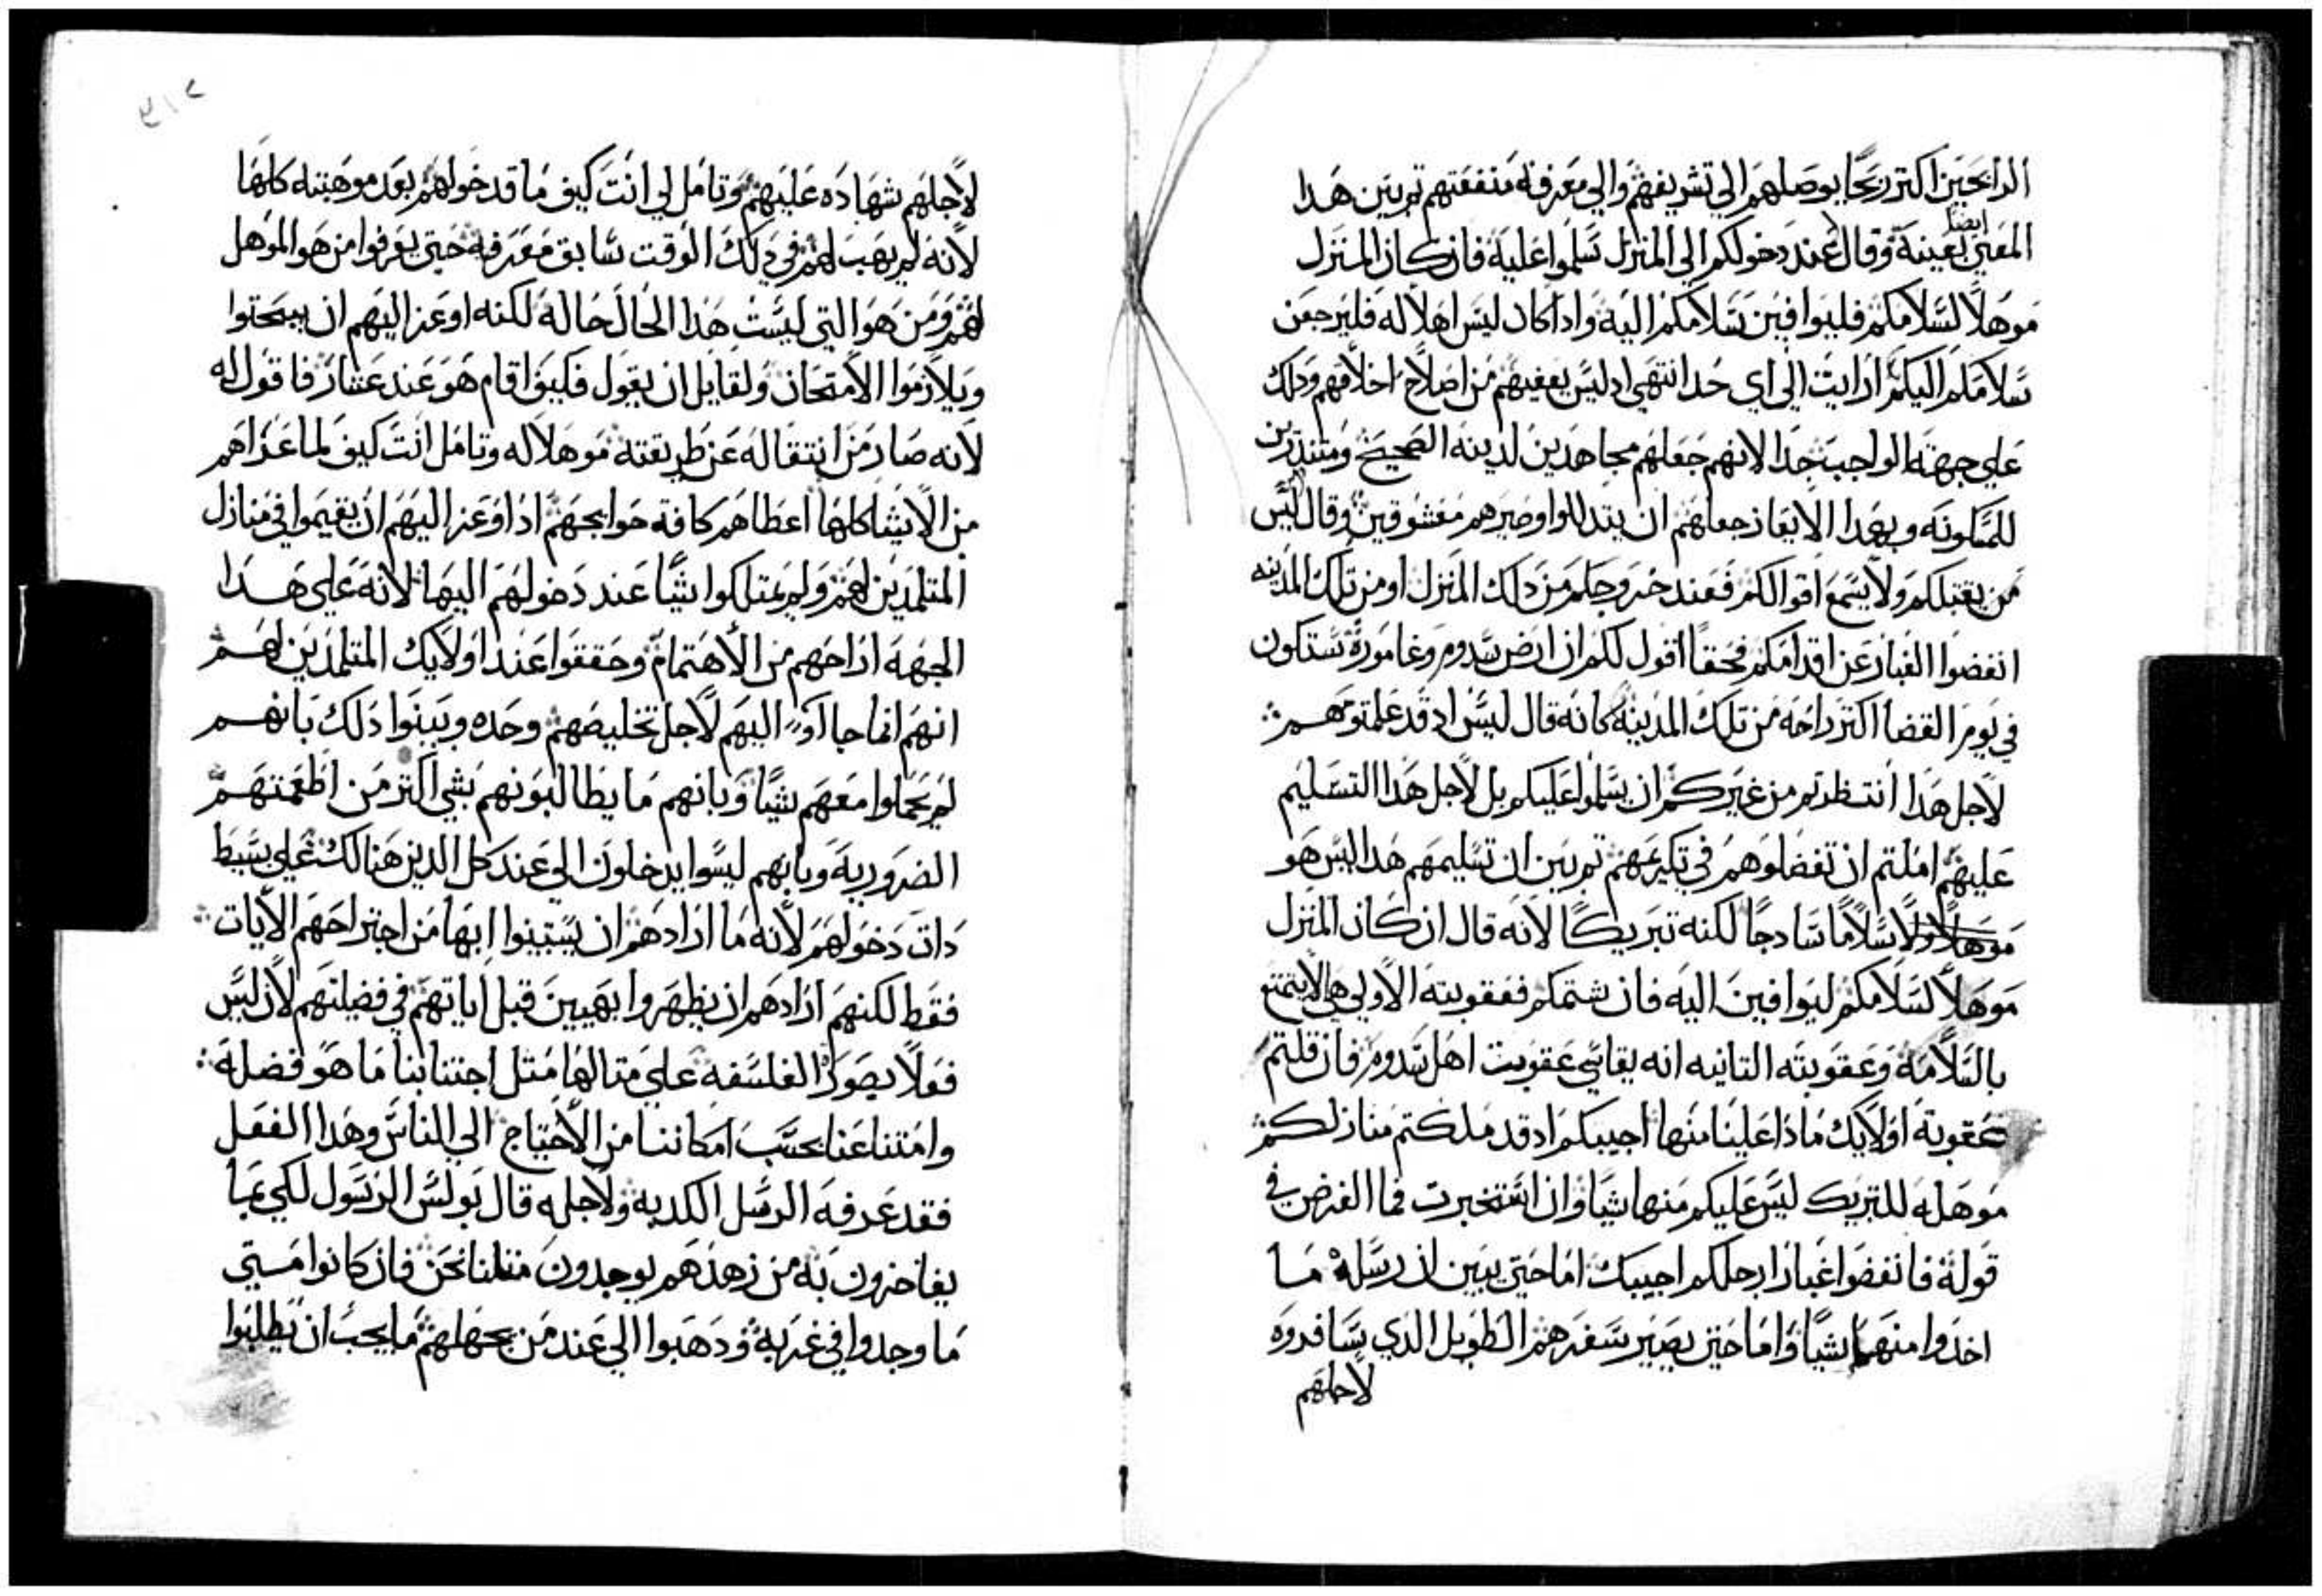 الرابحين اكتر ربحًا بوصلهم الي تشريفهم والي معرفة منفعتهم تم بين هدا
المعني بعينه ايضا وقال عند دخولكم الي المنزل سلموا عليه فان كان المنزل
موهلًا لسلامكم فليوافين سلامكم اليه وادا كان ليس اهلًا له فليرجعن
سلامكم اليكم ارايت الي اي حد انتهي اد ليس يعفيهم من اصلاح اخلاقهم ودلك
علي جهته الواجب جدا لانهم جعلهم مجاهدين لدينه الصحيح ومنذرين
للمسكونه وبهدا الايعاز جعلهم ان يتدللوا وصيرهم معشوقين وقال ليس
من يقبلكم ولا يسمع اقوالكم فعند خروجكم من دلك المنزل او من تلك المدينه
انفضوا الغبار عن اقدامكم فحقًا اقول لكم ان ارض سدوم وغامورة ستكون
في يوم القضا اكتر راحه من تلك المدينه كانه قال ليس اد قد علمتوهم
لاجل هدا انتظرتم من غيركم ان يسلموا عليكم بل لاجل هدا التسليم
عليهم املتم ان تفضلوهم في تكريمهم تم بين ان تسليمهم هدا ليس هو
سلامًا سادجًا لكنه تبريكًا لانه قال ان كان المنزل
موهلًا لسلامكم ليوافين اليه فان شتمكم فعقوبته الاولي هي الا يتمتع
بالسلامه وعقوبته التانيه انه يقاسي عقوبت اهل سدوم فان قلتم
عقوبة اولايك مادا علينا منها اجيبكم اد قد ملكتم منازلكم
موهله للتبريك ليس عليكم منها شيًا وان استخبرت فما الغرض في
قوله فانفضوا غبار ارجلكم اجيبك اما حتي يبين ان رسله ما
اخدوا منهم شيًا واما حتي يصير سفرهم الطويل الدي سافروه
لاجلهم
لاجلهم شهاده عليهم وتامل لي انت كيف ما قد خولهم بعد موهبته كلها
لانه لم يهب لهم في دلك الوقت سابق معرفه حتي يعرفوا من هو الموهل
لهم ومن هو التي ليست هدا الحال حاله لكنه اوعز اليهم ان يبحتوا
ويلازموا الامتحان ولقايل ان يقول فكيف اقام هو عند عشار فاقول له
لانه صار من انتقاله عن طريقته موهلا له وتامل انت كيف لما عراهم
من الاشيا كلها اعطاهم كافة حوايجهم ادا اوعز اليهم ان يقيموا في منازل
المتلمدين لهم ولم يمتلكوا شيًا عند دخولهم اليها لانه علي هدا
الجهه اراحهم من الاهتمام وحققوا عند اولايك المتلمدين لهم
انهم انما جااوا اليهم لاجل تخليصهم وحده وبينوا دلك بانهم
لم يحملوا معهم شيًا وبانهم ما يطالبونهم بشي اكتر من اطعمتهم
الضروريه وبانهم ليسوا يدخلون الي عند كل الدين هنالك علي بسيط
دات دخولهم لانه ما ارادهم ان يستبينوا ابها من اجتراحهم الايات
فقط لكنهم ارادهم ان يظهروا بهيين قبل اياتهم في فضيلتهم لان ليس
فعلًا يصور الفلسفه علي متالها متل اجتنابنا ما هو فضله
وامتناعنا بحسب امكاننا من الاحتياج الي الناس وهدا الفعل
فقد عرفه الرسل الكدبه ولاجله قال بولس الرسول لكي بما
يفاخرون به من زهدهم يوجدون متلنا نحن فان كانوا متي
ما وجدوا في غربه ودهبوا الي عند من يجهلهم ما يجب ان يطلبوا